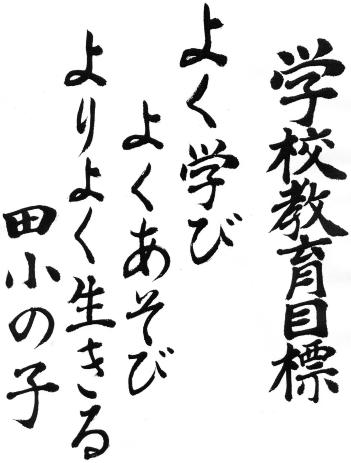 学校教育目標
よく学び
よくあそび
よりよく生きる
田小の子